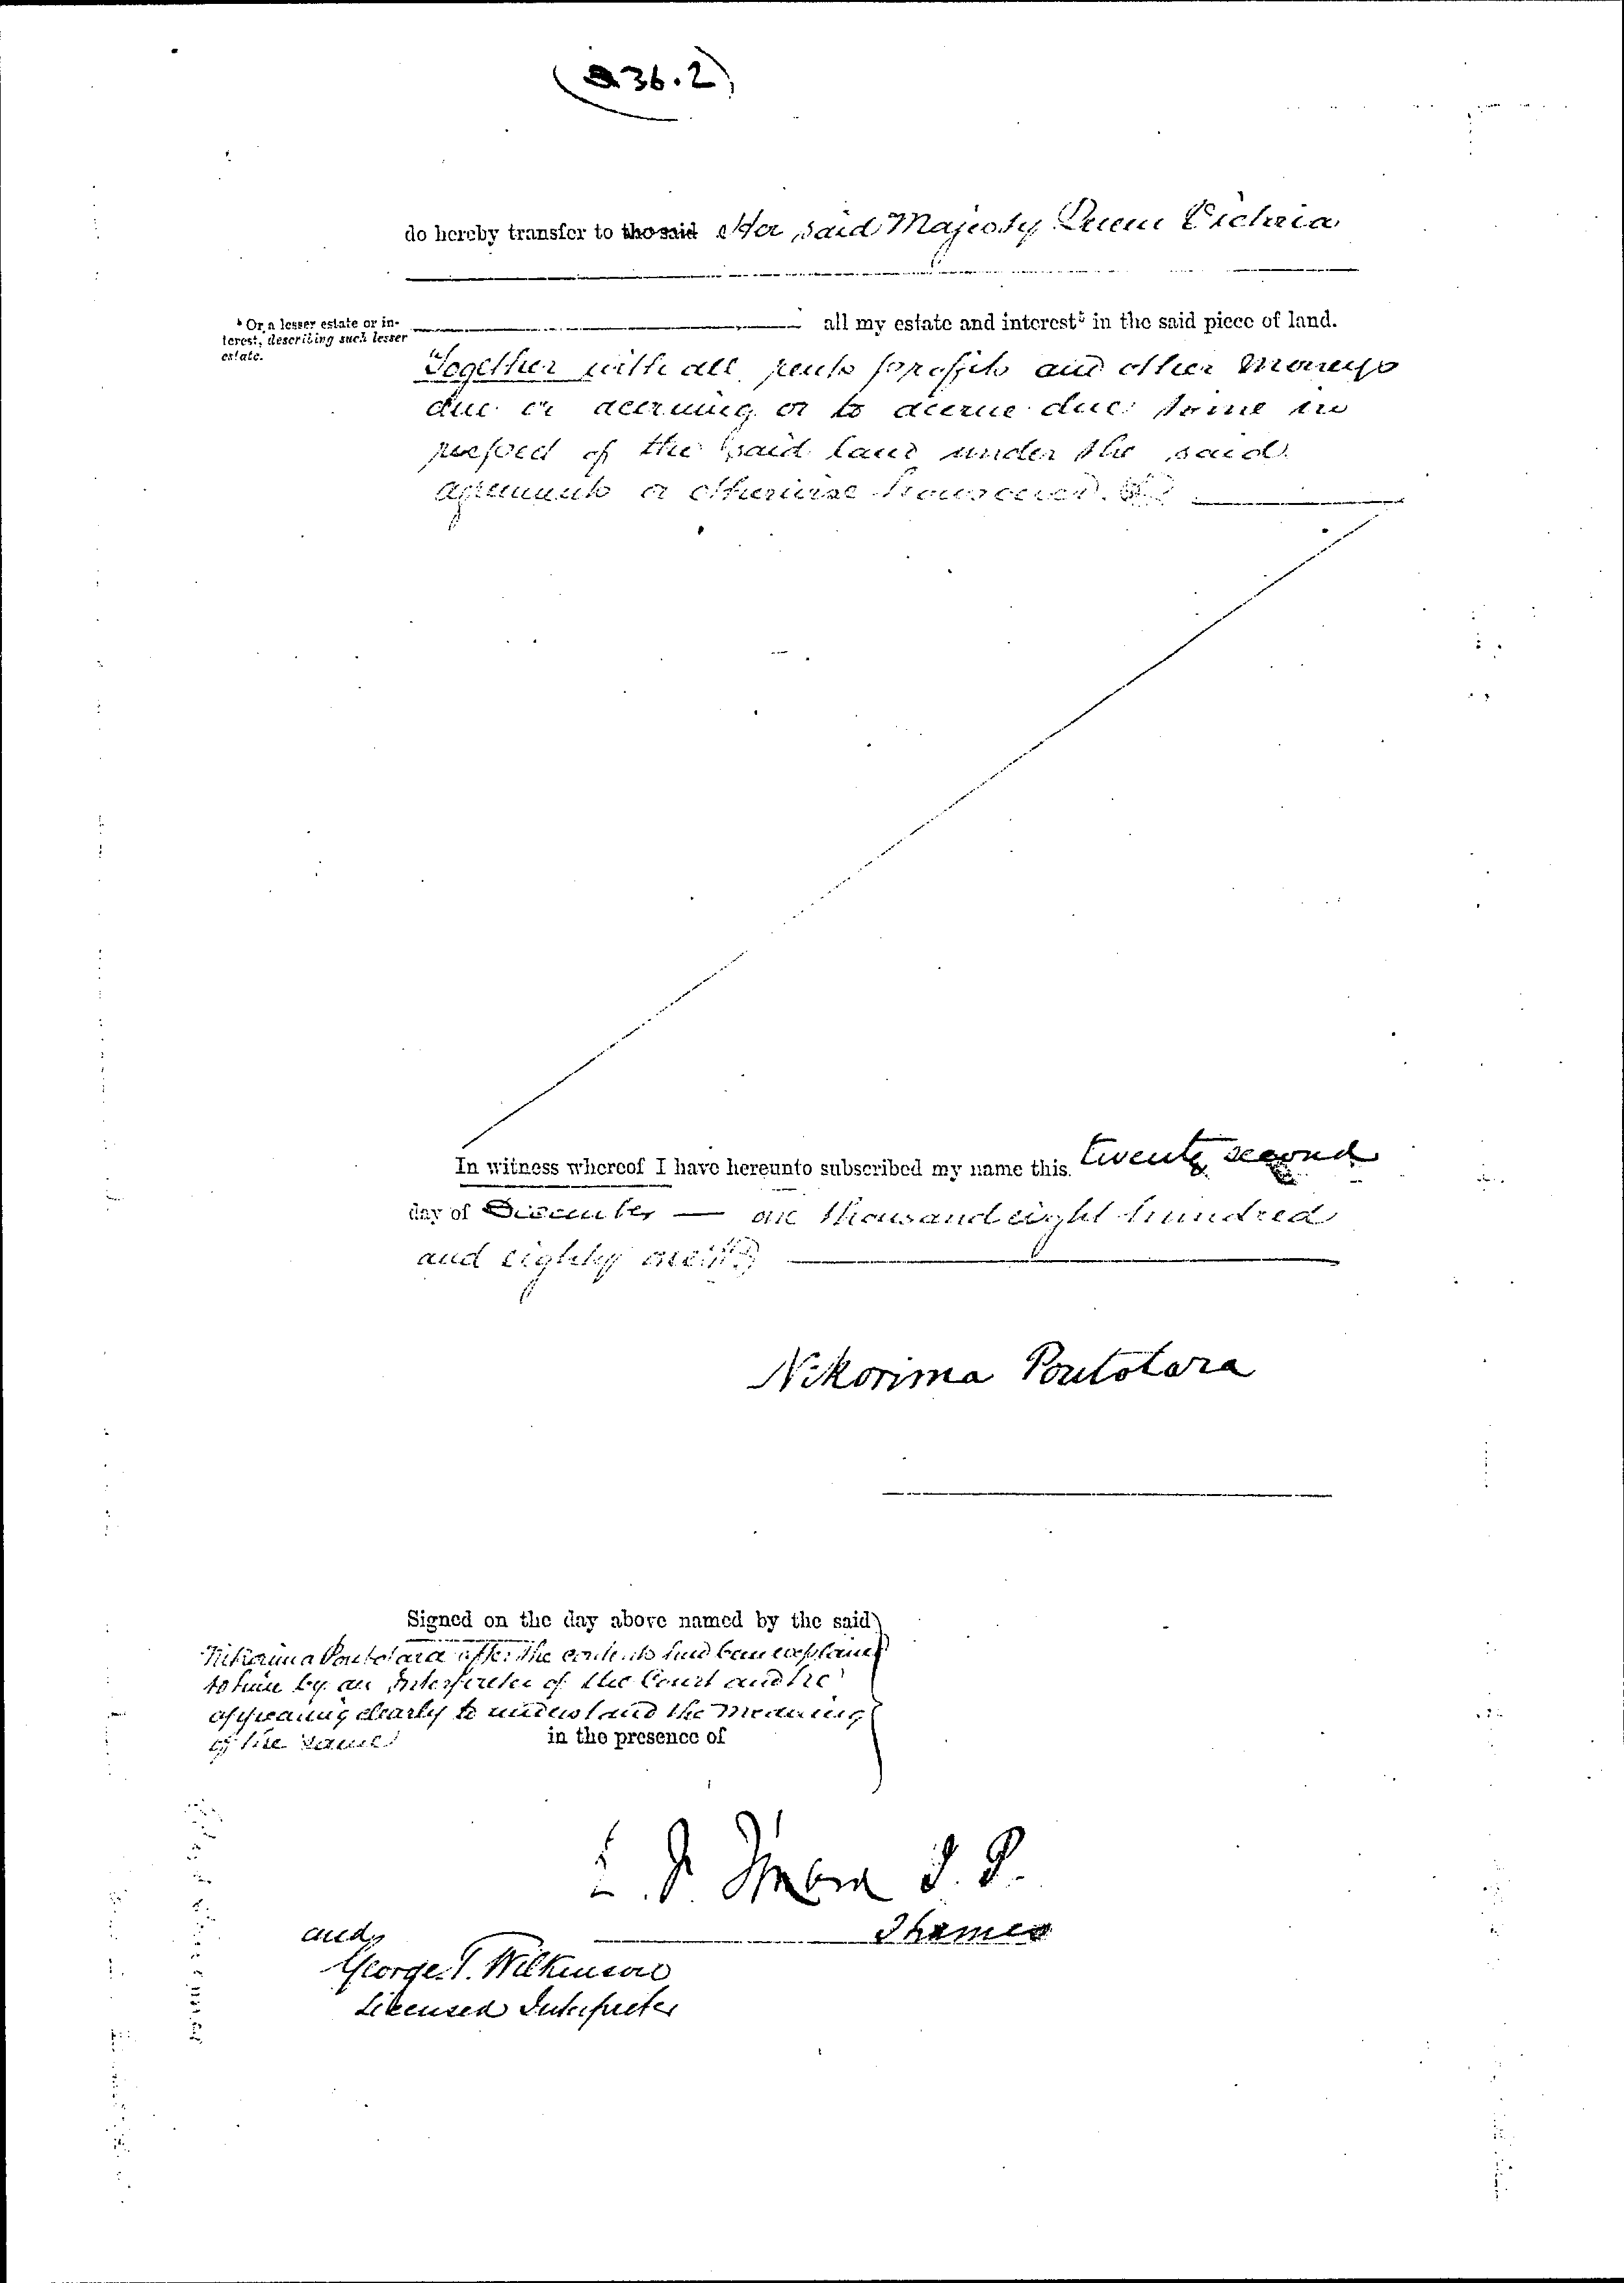 36.2)
do hereby transfer to the said Her said Majesty Queen Victoria
⁵ Or a lesser estate or in-
terest, describing such lesser
estate.
all my estate and interest⁵ in the said piece of land.
Together with all rents profits and other moneys
due or accruing or to accrue due to me in
respect of the said land under the said
agreements or otherwise howsoever.
In witness whereof I have hereunto subscribed my name this twenty second
day of December — one thousand eight hundred
and eighty one
Nikorima Poutotara
Signed on the day above named by the said
Nikorima Poutotara after the contents had been explained
to him by an Interpreter of the Court and he
appearing clearly to understand the meaning
of the same in the presence of
J. P.
Thames
and
George T. Wilkinson
Licensed Interpreter